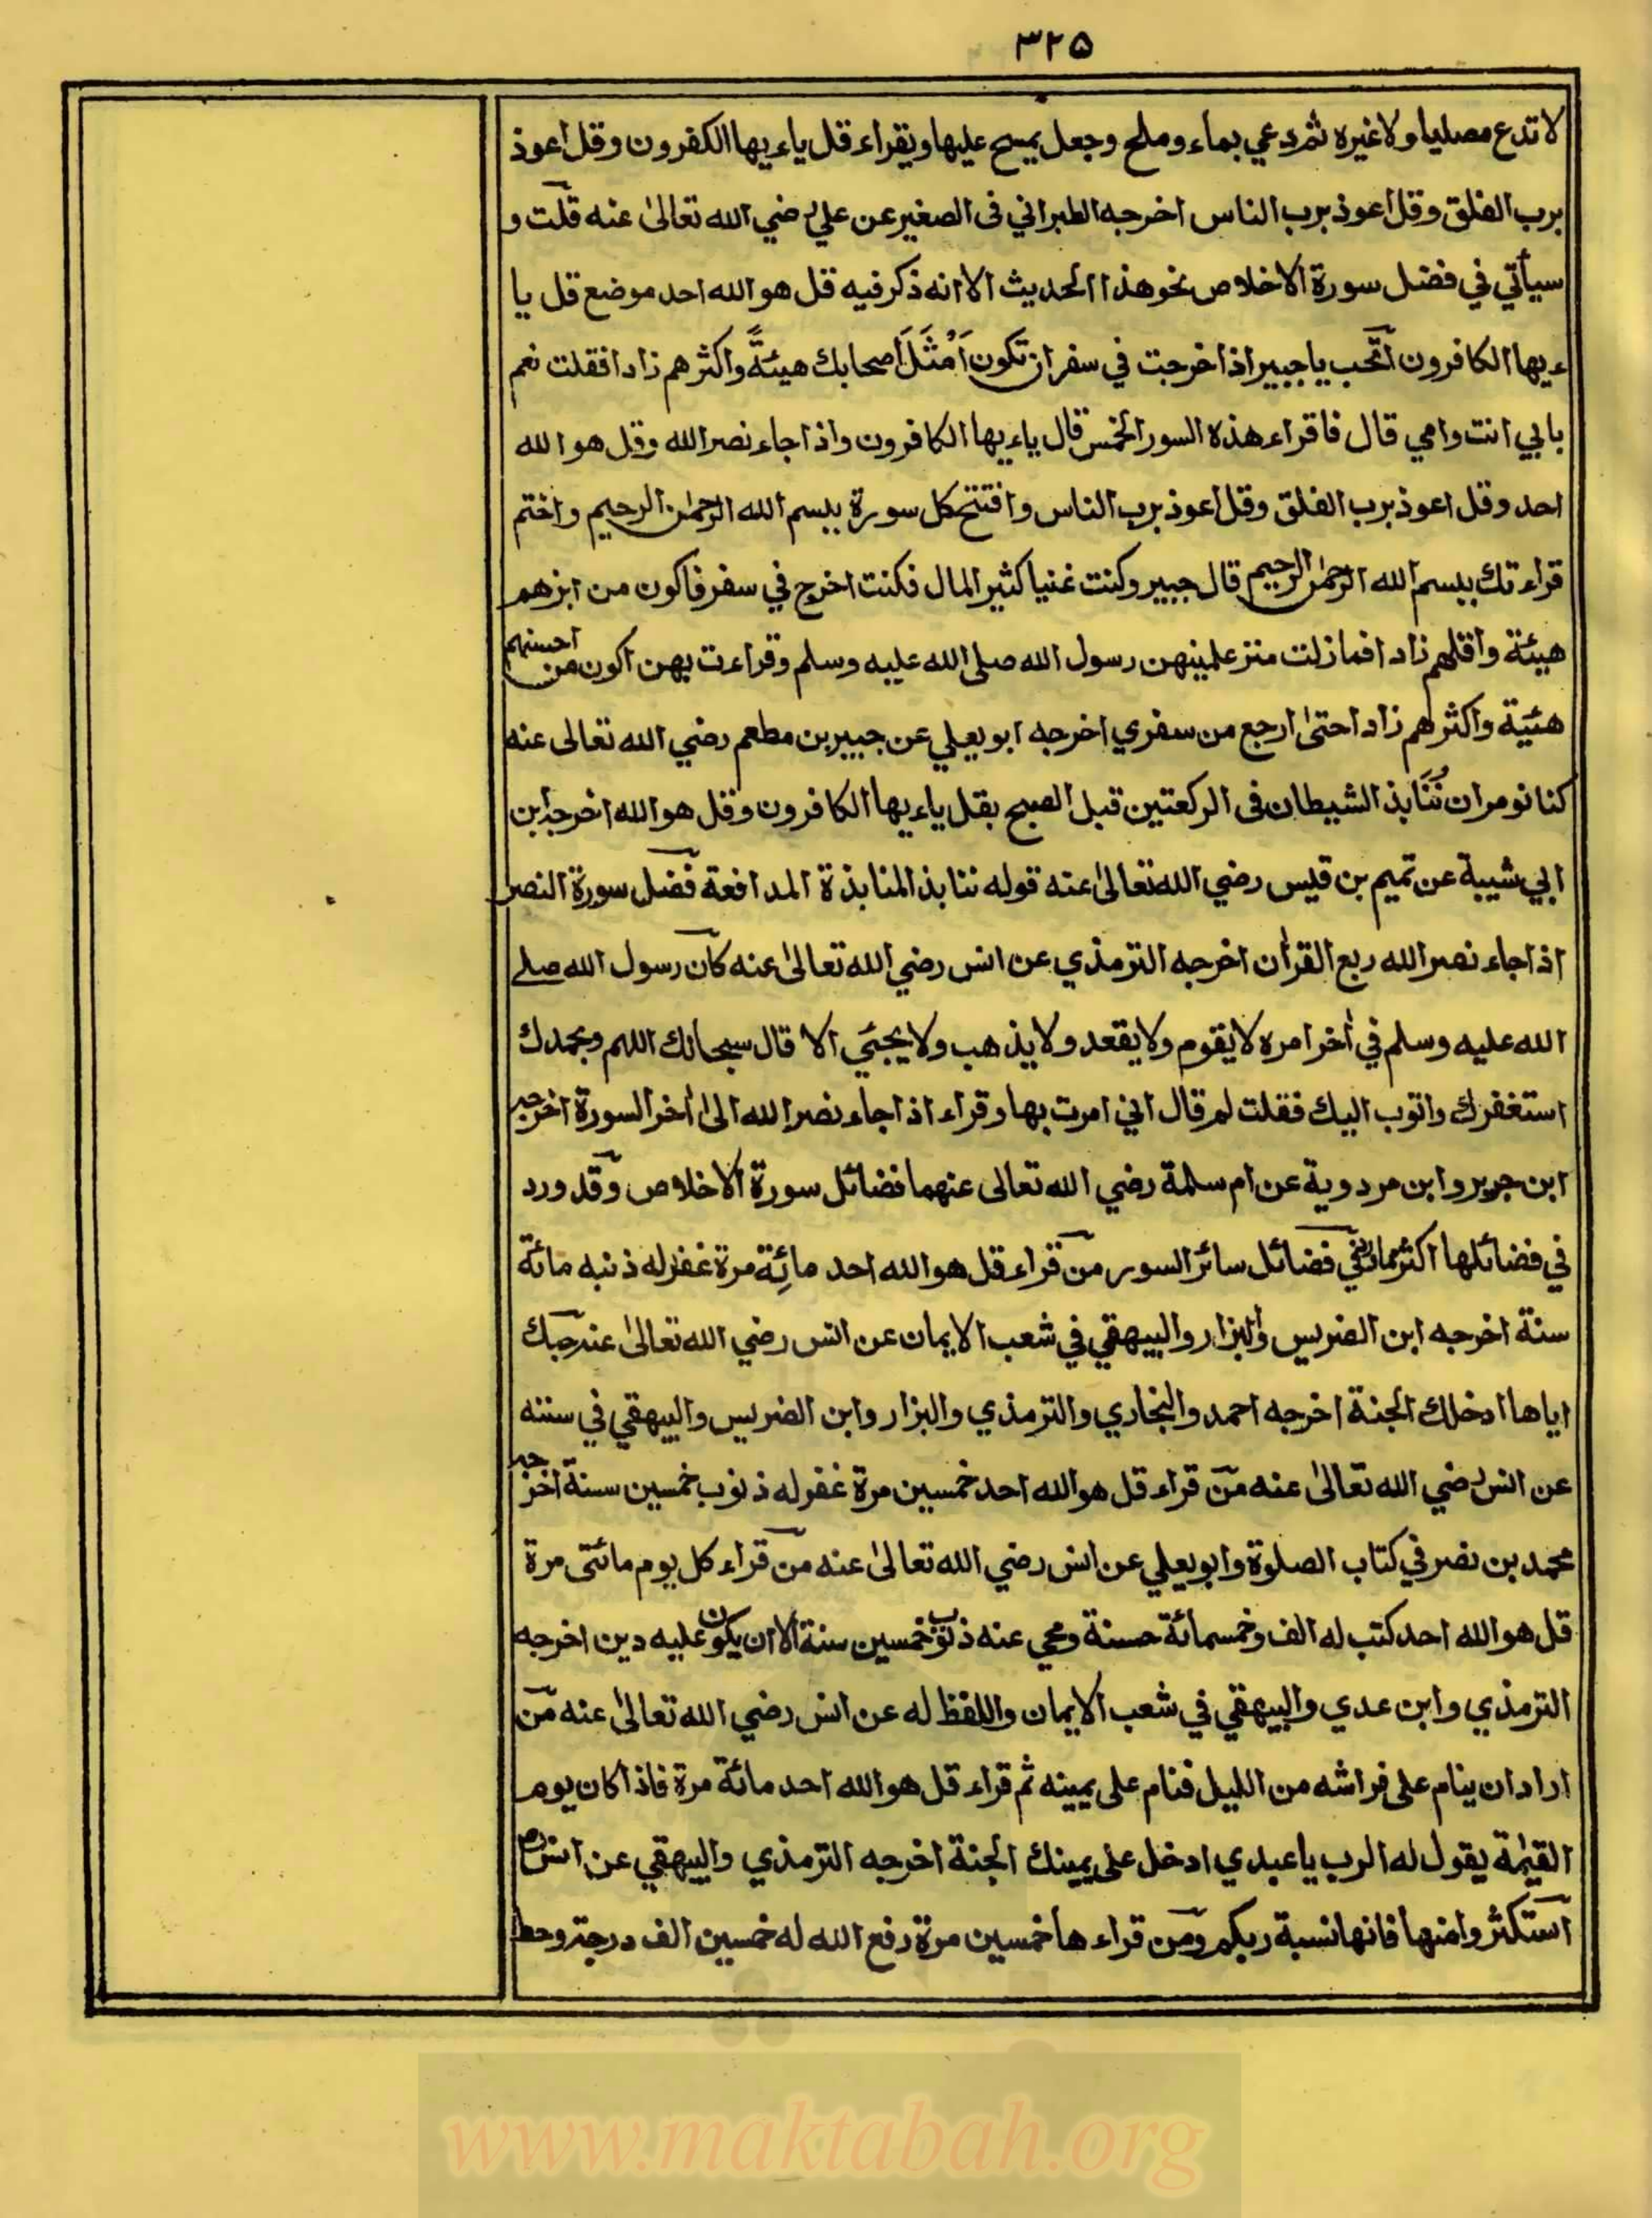 ٣٢٥
لا تدع مصليا ولا غيره ثم دعي بماء وملح وجعل يمسح عليها ويقراء قل ياءيها الكفرون وقل اعوذ
برب الفلق وقل اعوذ برب الناس اخرجه الطبراني فى الصغير عن علي رضي الله تعالىٰ عنه قلت و
سيأتي في فضل سورة الاخلاص نحو هذا الحديث الا انه ذكر فيه قل هو الله احد موضع قل يا
ءيها الكافرون اتحب يا جبير اذا خرجت في سفر ان تكون اَمْثَلَ اصحابك هيئةً واكثرهم زادا فقلت نعم
بابي انت وامي قال فاقراء هذه السور الخمس قال ياءيها الكافرون واذا جاء نصر الله وقل هو الله
احد وقل اعوذ برب الفلق وقل اعوذ برب الناس وافتتح كل سورة ببسم الله الرحمٰن الرحيم واختم
قراءتك ببسم الله الرحمٰن الرحيم قال جبير وكنت غنيا كثير المال فكنت اخرج في سفر فاكون من ابزهم
هيئة واقلهم زادا فما زلت منذ علمنيهن رسول الله صلى الله عليه وسلم وقراءت بهن اكون من احسنهم
هئية واكثرهم زادا حتىٰ ارجع من سفري اخرجه ابو يعلي عن جبير بن مطعم رضي الله تعالى عنه
كنا نومر ان نُنَابذ الشيطان فى الركعتين قبل الصبح بقل ياءيها الكافرون وقل هو الله اخرجه ابن
ابي شيبة عن تميم بن قيس رضي الله تعالىٰ عنه قوله ننابذ المنابذة المدافعة فضل سورة النصر
اذا جاء نصر الله ربع القراٰن اخرجه الترمذي عن انس رضي الله تعالىٰ عنه كان رسول الله صلے
الله عليه وسلم في اٰخر امره لا يقوم ولا يقعد ولا يذهب ولا يجئي الا قال سبحانك اللهم وبحمدك
استغفرك واتوب اليك فقلت لم قال اني امرت بها وقراء اذا جاء نصر الله الىٰ اٰخر السورة اخرجه
ابن جرير وابن مردوية عن ام سلمة رضي الله تعالى عنهما فضائل سورة الاخلاص وقد ورد
في فضائلها اكثر مما في فضائل سائر السور من قراء قل هو الله احد مائِة مرة غفر له ذنبه مائة
سنة اخرجه ابن الضريس والبزار والبيهقي في شعب الايمان عن انس رضي الله تعالىٰ عنه حبك
اياها ادخلك الجنة اخرجه احمد والبخاري والترمذي والبزار وابن الضريس والبيهقي في سننه
عن انس رضي الله تعالىٰ عنه من قراء قل هو الله احد خمسين مرة غفر له ذنوب خمسين سنة اخرجه
محمد بن نصر في كتاب الصلوة وابو يعلي عن انس رضي الله تعالىٰ عنه من قراء كل يوم مائتى مرة
قل هو الله احد كتب له الف وخمسمائة حسنة ومحي عنه ذنوب خمسين سنة الا ان يكون عليه دين اخرجه
الترمذي وابن عدي والبيهقي في شعب الايمان واللفظ له عن انس رضي الله تعالىٰ عنه من
اراد ان ينام على فراشه من الليل فنام على يمينه ثم قراء قل هو الله احد مائة مرة فاذا كان يوم
القيٰمة يقول له الرب يا عبدي ادخل على يمينك الجنة اخرجه الترمذي والبيهقي عن انس رض
استكثروا منها فانها نسبة ربكم ومن قراءها خمسين مرة رفع الله له خمسين الف درجة وحط
www.maktabah.org